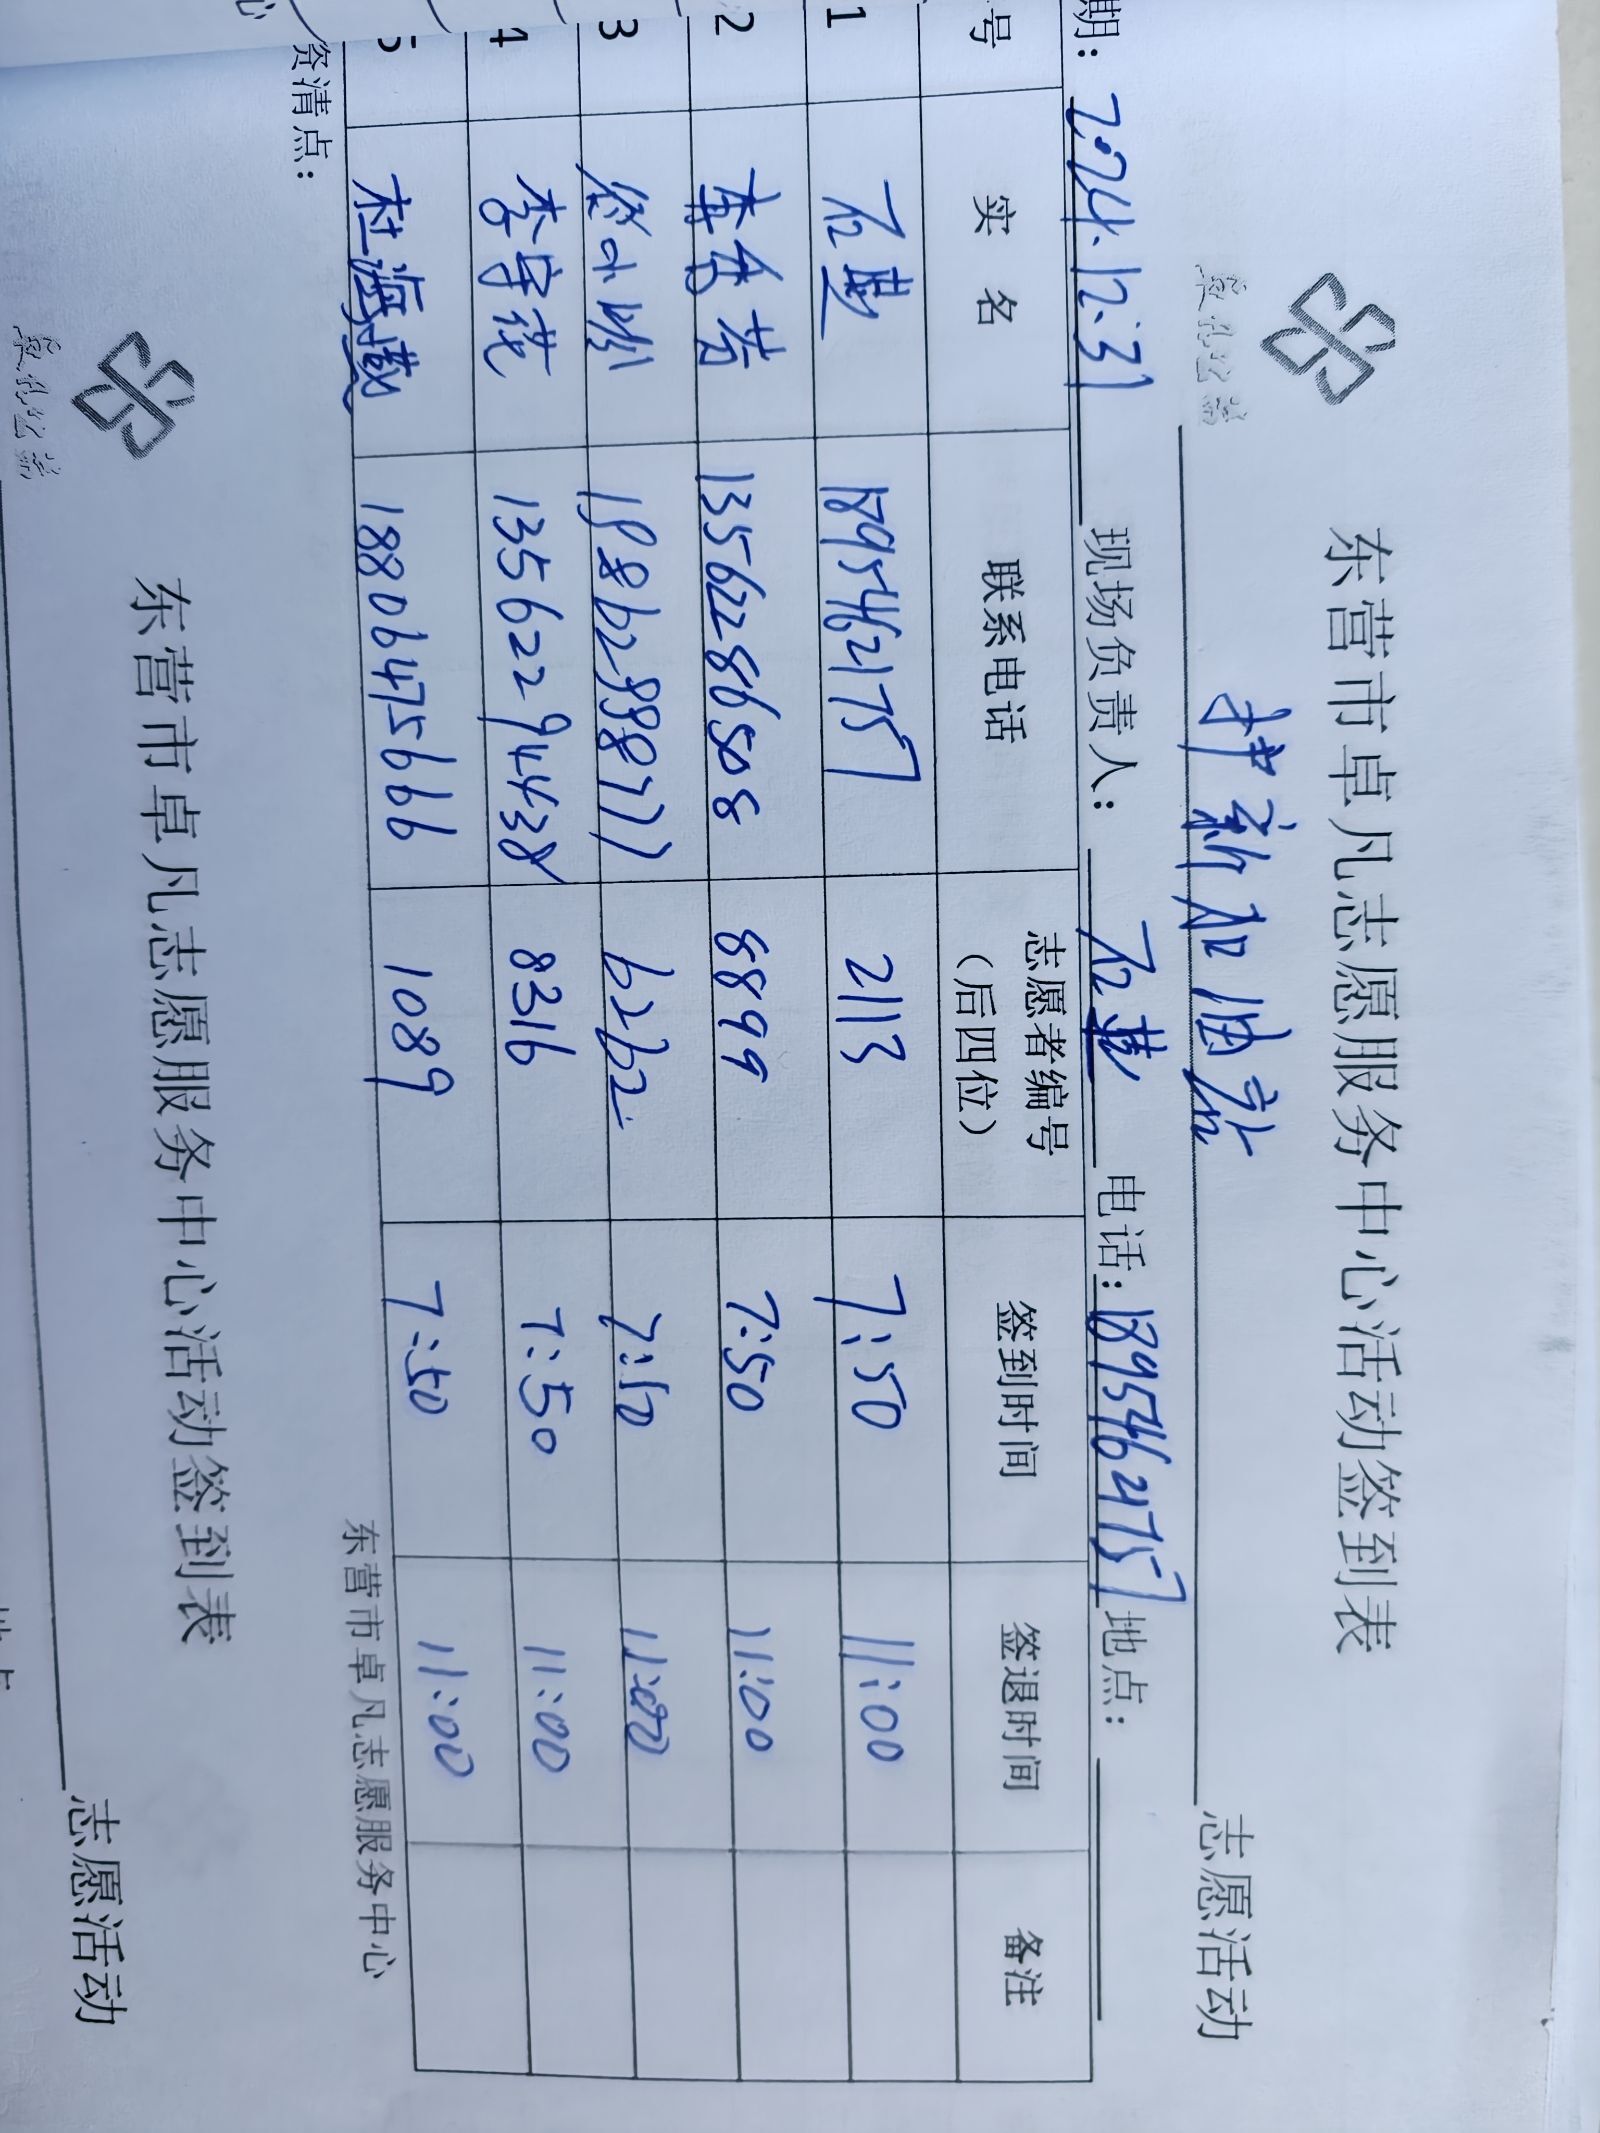 东营市卓凡志愿服务中心活动签到表
护新加油站 志愿活动
期: 2024.12.31 现场负责人: 石慧 电话: 18954621757 地点:
号 实 名 联系电话 志愿者编号(后四位) 签到时间 签退时间 备注
1 18954621757 2113 7:50 11:00
2 13562286508 8899 7:50 11:00
3 6262 7:50 11:00
4 13562294438 8316 7:50 11:00
5 18806475666 1089 7:50 11:00
资清点:
东营市卓凡志愿服务中心
东营市卓凡志愿服务中心活动签到表
志愿活动